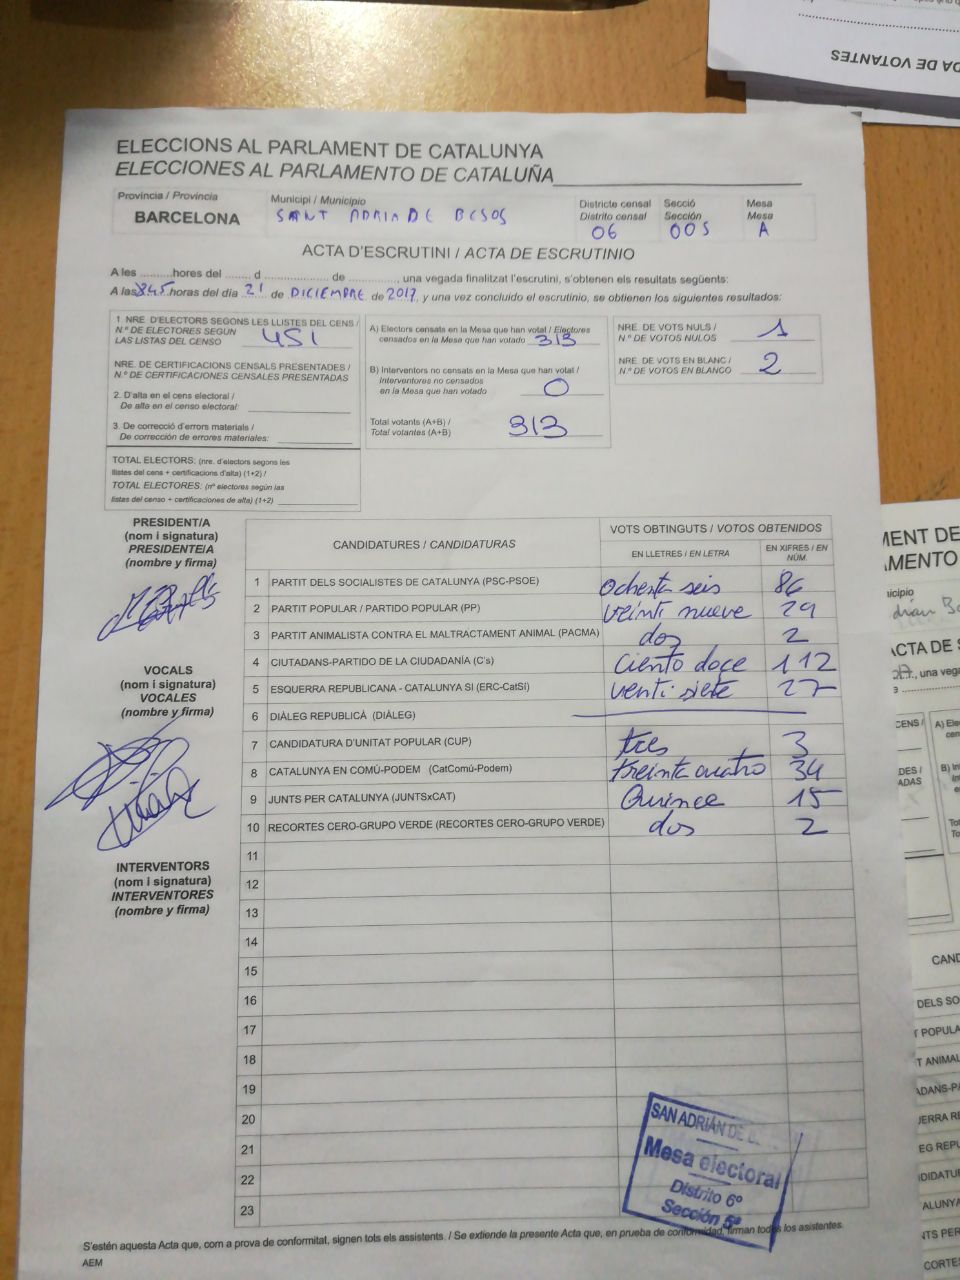 DA DE VOTANTES
ELECCIONS AL PARLAMENT DE CATALUNYA
ELECCIONES AL PARLAMENTO DE CATALUÑA
Provincia / Provincia
BARCELONA
Municipi / Municipio
SANT ADRIA DE BESOS
Districte censal
Distrito censal
06
Secció
Sección
005
Mesa
Mesa
A
ACTA D'ESCRUTINI / ACTA DE ESCRUTINIO
A les ..........hores del ........ d .................... de ...................., una vegada finalitzat l'escrutini, s'obtenen els resultats següents:
A las 845 horas del día 21 de DICIEMBRE de 2017, y una vez concluido el escrutinio, se obtienen los siguientes resultados:
1. NRE. D'ELECTORS SEGONS LES LLISTES DEL CENS /
N.º DE ELECTORES SEGUN
LAS LISTAS DEL CENSO 451
NRE. DE CERTIFICACIONS CENSALS PRESENTADES /
N.º DE CERTIFICACIONES CENSALES PRESENTADAS
2. D'alta en el cens electoral /
De alta en el censo electoral:
3. De correcció d'errors materials /
De corrección de errores materiales:
TOTAL ELECTORS: (nre. d'electors segons les
llistes del cens + certificacions d'alta) (1+2) /
TOTAL ELECTORES: (nº electores según las
listas del censo + certificaciones de alta) (1+2)
A) Electors censats en la Mesa que han votat / Electores
censados en la Mesa que han votado 313
B) Interventors no censats en la Mesa que han votat /
Interventores no censados
en la Mesa que han votado 0
Total votants (A+B) /
Total votantes (A+B) 313
NRE. DE VOTS NULS /
N.º DE VOTOS NULOS 1
NRE. DE VOTS EN BLANC /
N.º DE VOTOS EN BLANCO 2
PRESIDENT/A
(nom i signatura)
PRESIDENTE/A
(nombre y firma)
VOCALS
(nom i signatura)
VOCALES
(nombre y firma)
INTERVENTORS
(nom i signatura)
INTERVENTORES
(nombre y firma)
CANDIDATURES / CANDIDATURAS
VOTS OBTINGUTS / VOTOS OBTENIDOS
EN LLETRES / EN LETRA
EN XIFRES / EN
NÚM.
1 PARTIT DELS SOCIALISTES DE CATALUNYA (PSC-PSOE) ochenta seis 86
2 PARTIT POPULAR / PARTIDO POPULAR (PP) veinti nueve 29
3 PARTIT ANIMALISTA CONTRA EL MALTRACTAMENT ANIMAL (PACMA) dos 2
4 CIUTADANS-PARTIDO DE LA CIUDADANÍA (C's) ciento doce 112
5 ESQUERRA REPUBLICANA - CATALUNYA SI (ERC-CatSí) venti siete 27
6 DIÀLEG REPUBLICÀ (DIÀLEG)
7 CANDIDATURA D'UNITAT POPULAR (CUP) tres 3
8 CATALUNYA EN COMÚ-PODEM (CatComú-Podem) treinta cuatro 34
9 JUNTS PER CATALUNYA (JUNTSxCAT) Quince 15
10 RECORTES CERO-GRUPO VERDE (RECORTES CERO-GRUPO VERDE) dos 2
11
12
13
14
15
16
17
18
19
20
21
22
23
SAN ADRIÁN DE
Mesa electoral
Distrito 6º
Sección 5ª
S'estén aquesta Acta que, com a prova de conformitat, signen tots els assistents. / Se extiende la presente Acta que, en prueba de conformidad, firman todos los asistentes.
AEM